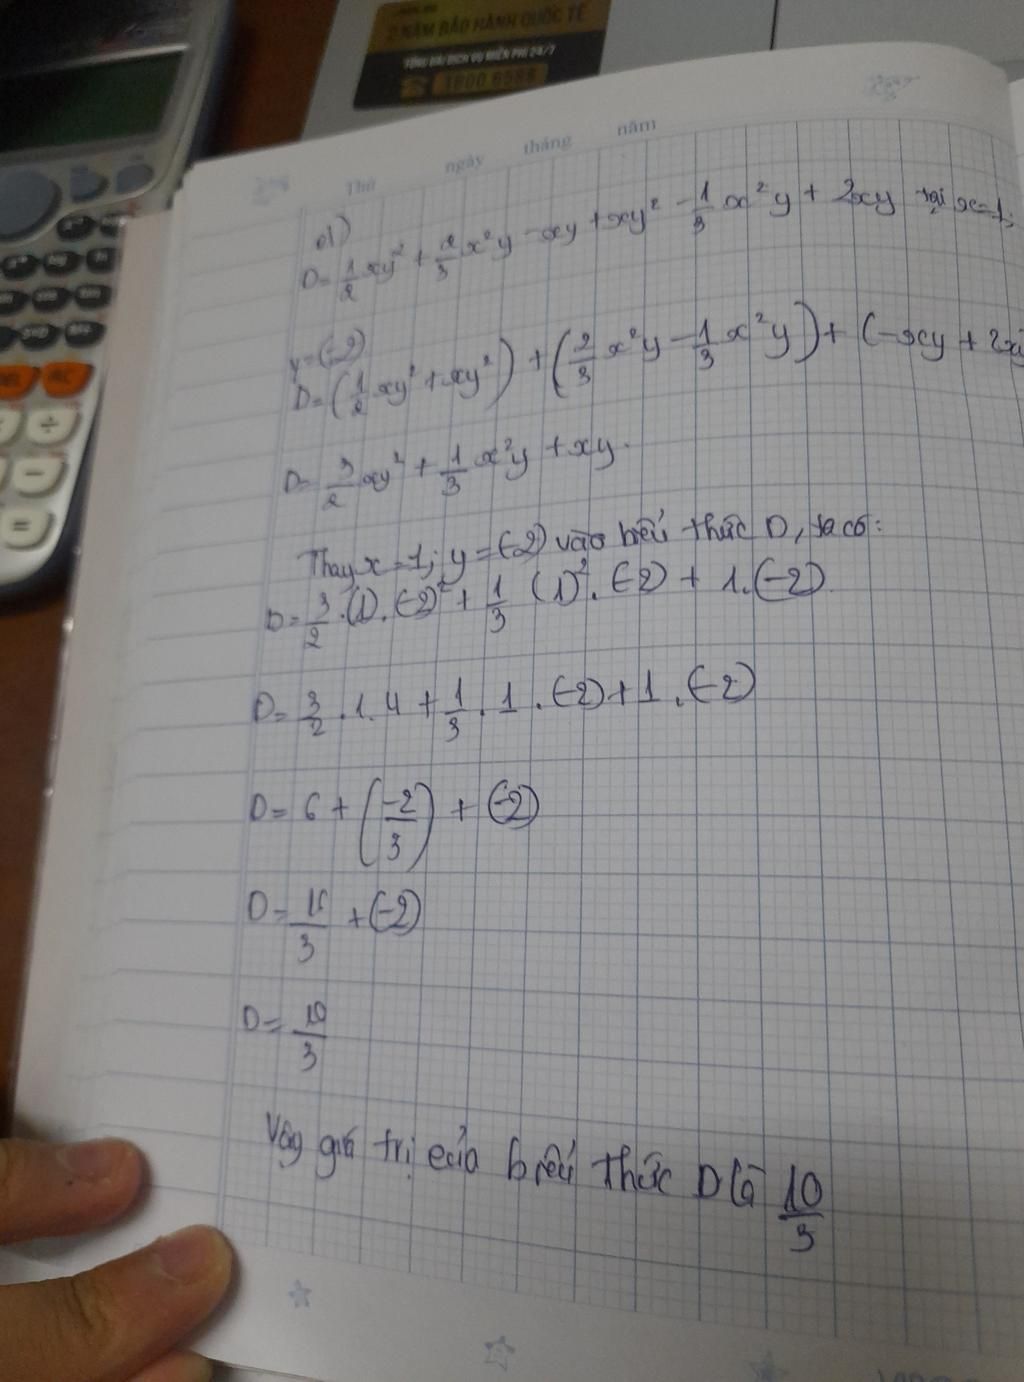 2 NĂM BẢO HÀNH QUỐC TẾ
TỔNG ĐÀI DỊCH VỤ MIỄN PHÍ 24/7
1800 6588
Thứ ngày tháng năm
d)
D = \frac{1}{2}xy² + \frac{2}{3}x²y - xy + xy² - \frac{1}{3}x²y + 2xy tại x=1;
y = (-2)
D = (\frac{1}{2}xy² + xy²) + (\frac{2}{3}x²y - \frac{1}{3}x²y) + (-xy + 2xy
D = \frac{3}{2}xy² + \frac{1}{3}x²y + xy.
Thay x = 1; y = (-2) vào biểu thức D, ta có:
D = \frac{3}{2}.(1).(-2)² + \frac{1}{3}(1)².(-2) + 1.(-2)
D = \frac{3}{2}.1.4 + \frac{1}{3}.1.(-2) + 1.(-2)
D = 6 + (\frac{-2}{3}) + (-2)
D = \frac{16}{3} + (-2)
D = \frac{10}{3}
Vậy giá trị của biểu thức D là \frac{10}{3}